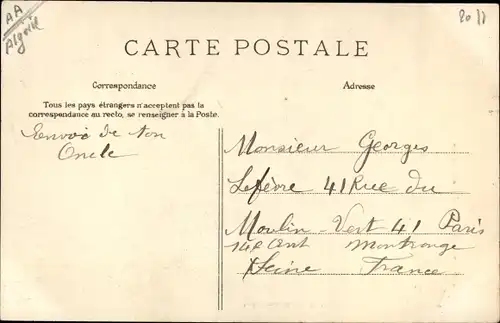 AA
Algérie
CARTE POSTALE
Correspondance
Adresse
Tous les pays étrangers n'acceptent pas la
correspondance au recto, se renseigner à la Poste.
Envoi de ton
Oncle
Monsieur Georges
Lefèvre 41 Rue du
Moulin-Vert 41 Paris
14e Ont Montrouge
Seine France